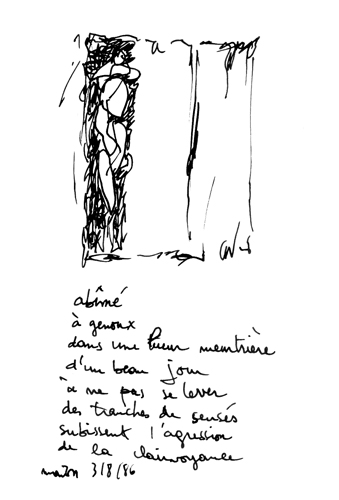 abîmé
à genoux
dans une lueur meurtrière
d'un beau jour
à ne pas se lever
des tranches de sensés
subissent l'agression
de la clairvoyance
3/8/86